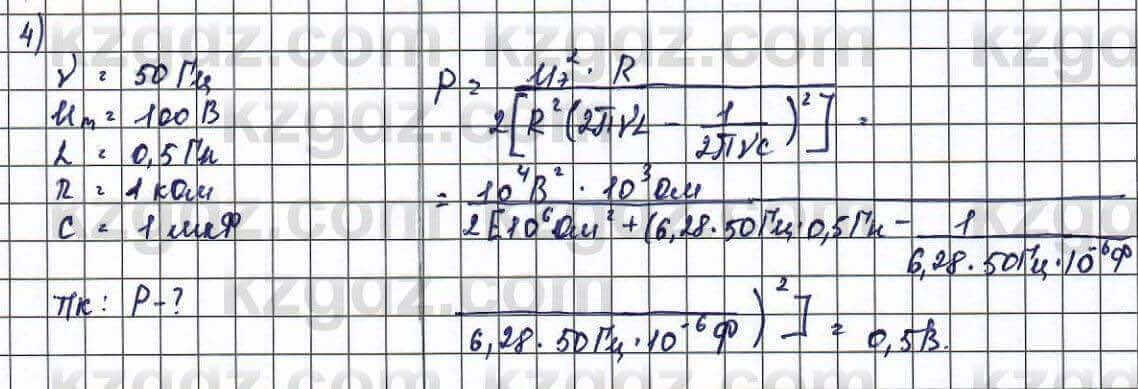 4)
ν = 50 Гц
Um = 100 В
L = 0,5 Гн
R = 1 кОм
C = 1 мкФ
Тк: P - ?
P = Um² · R / 2[R² (2πνL - 1/2πνC)²] =
= 10⁴ В² · 10³ Ом / 2[10⁶ Ом² + (6,28 · 50 Гц · 0,5 Гн - 1 / 6,28 · 50 Гц · 10⁻⁶ Ф
/ 6,28 · 50 Гц · 10⁻⁶ Ф)²] = 0,5 В.
kzgdz.com